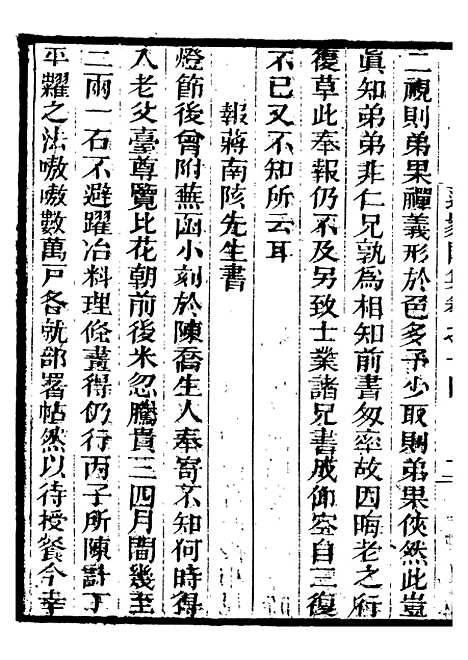 二視則弟果禪義形於色多予少取則弟果俠然此豈
眞知弟弟非仁兄孰為相知前書匆率故因晦老之行
復草此奉報仍不及另致士業諸兄書成仰空自三復
不已又不知所云耳
報蔣南陔先生書
燈節後曾附蕪函小刻於陳喬生人奉寄不知何時得
入老父臺尊覽比花朝前後米忽騰貴三四月間幾至
二兩一石不避躍冶料理條畫得仍行丙子所陳計丁
平糶之法嗷嗷數萬戶各就部署帖然以待授餐今幸